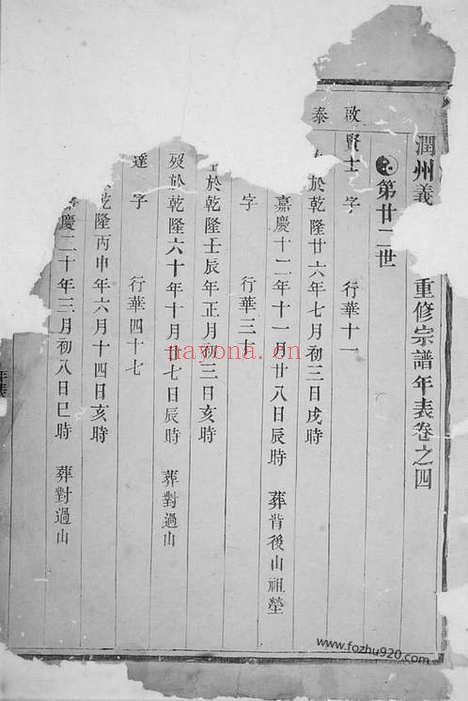 潤州義 重修宗譜年表卷之四
第廿二世
敬賢士 字 行華十一
泰 於乾隆廿六年七月初三日戌時
嘉慶十二年十一月廿八日辰時 葬背後山祖塋
字 行華三十
於乾隆壬辰年正月初三日亥時
歿於乾隆六十年十月廿七日辰時 葬對過山
逵字 行華四十七
乾隆丙申年六月十四日亥時
嘉慶二十年三月初八日巳時 葬對過山
nayona.cn
www.fozhu920.com